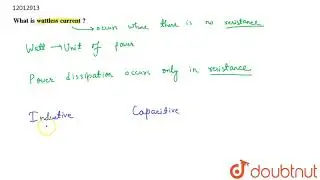 12012913
What is wattless current ?
occurs where there is no resistance
Watt → Unit of power
Power dissipation occurs only in resistance
Inductive Capacitive
doubtnut